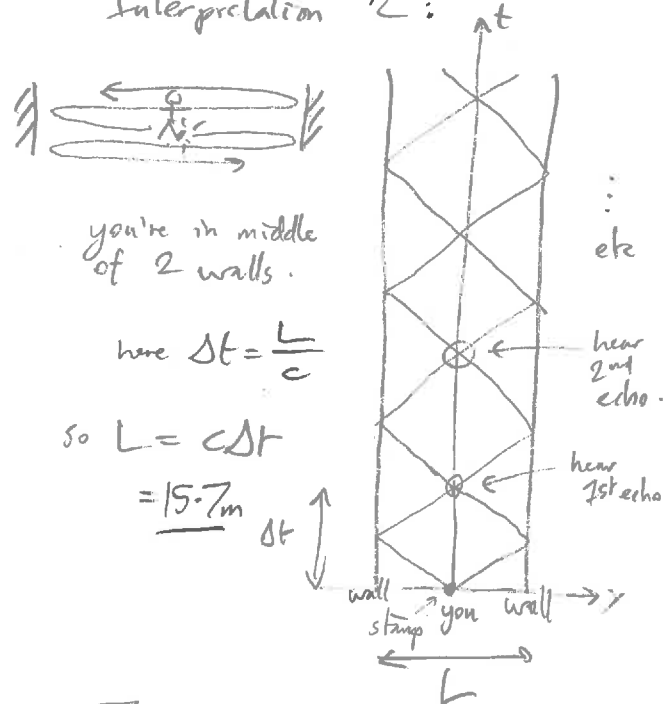 Interpretation 2:
t
you're in middle
of 2 walls.
here Δt = L/c
so L = cΔt
= 15.7m
Δt
⋮
etc
hear
2nd
echo.
hear
1st echo
wall
stamp
you
wall
L